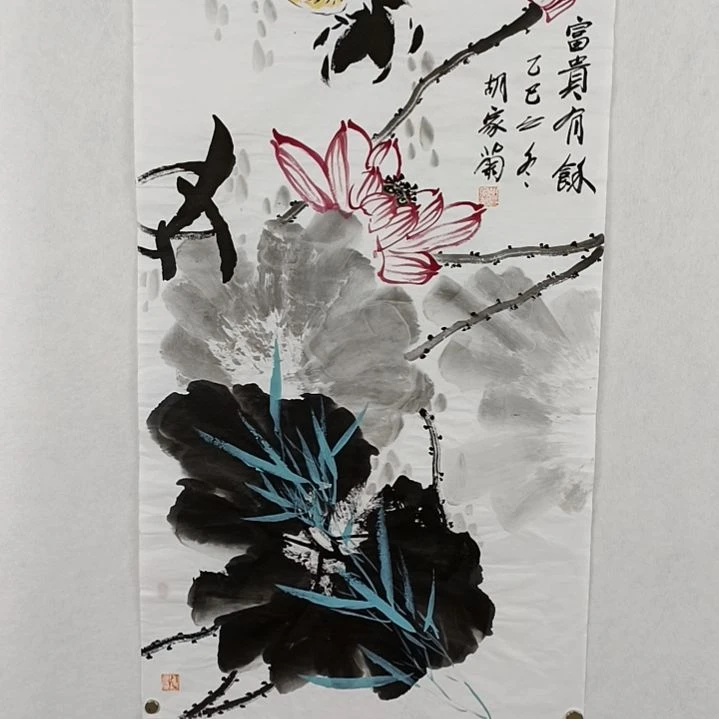 富貴有餘
乙巳之冬
胡家菊